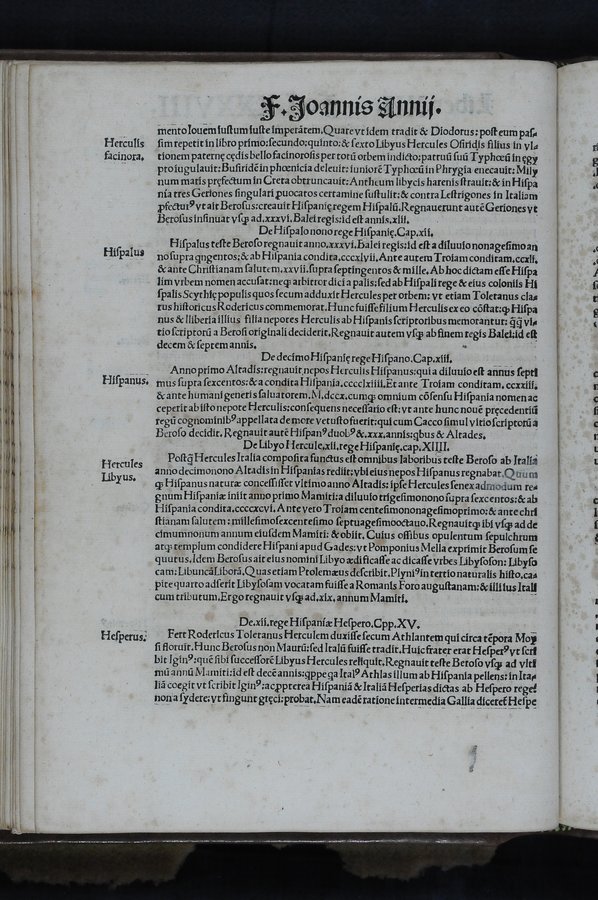 F. Joannis Annij.
mento Iouem Iustum Iuste Imperãtem. Quare vt idem tradit & Diodorus: post eum pas-
Herculis facinora.
sim repetit in libro primo: secundo: quinto: & sexto Libyus Hercules Osiridis filius in vl-
tionem paternę cędis bello facinorosis per totũ orbem indicto: patruũ suũ Typhœũ in ęgy
pto iugulauit: Busiridẽ in phœnicia deleuit: iuniorẽ Typhœũ in Phrygia enecauit: Mily
num matis pręfectum in Creta obtruncauit: Antheum libycis harenis strauit: & in Hispa
nia tres Geriones singulari ꝓuocatos certamine sustulit: & contra Lestrigones in Italiam
ꝓfectur⁹ vt ait Berosus: creauit Hispanię regem Hispalũ. Regnauerunt autẽ Geriones vt
Berosus insinuat vsq; ad .xxxvi. Balei regis: id est annis .xlii.
De Hispalo nono rege Hispanię. Cap. xii.
Hispalus
Hispalus teste Beroso regnauit anno .xxxvi. Balei regis: id est a diluuio nonagesimo an
no supra qngentos: & ab Hispania condita .cccxlvii. Ante autem Troiam conditam .ccxli.
& ante Christianam salutem .xxvii. supra septingentos & mille. Ab hoc dictam esse Hispa
lim vrbem nomen accusat: neq; arbitror dici a palis: sed ab Hispali rege & eius coloniis Hi
spalis Scythię populis quos secum adduxit Hercules per orbem: vt etiam Toletanus cla-
rus historicus Rodericus commemorat. Hunc fuisse filium Herculis ex eo cõstat: ꝙ Hispa
nus & Iliberia illius filia nepotes Herculis ab Hispanis scriptoribus memorantur: q̃q̃ vi-
tio scriptorũ a Berosi originali deciderit. Regnauit autem vsq; ab finem regis Balei: id est
decem & septem annis.
De decimo Hispanię rege Hispano. Cap. xiii.
Hispanus.
Anno primo Altadis: regnauit nepos Herculis Hispanus: qui a diluuio est annus septi
mus supra sexcentos: & a condita Hispania .cccclxiiii. Et ante Troiam conditam .ccxxiii.
& ante humani generis saluatorem .M.dccx. cumq; omnium cõsensu Hispania nomen ac
ceperit ab isto nepote Herculis: consequens necessario est: vt ante hunc nouẽ pręcedentiũ
regũ cognominib⁹ appellata de more vetusto fuerit: qui cum Cacco simul vitio scriptorũ a
Beroso decidit. Regnauit autẽ Hispan⁹ duob⁹ &.xxx. annis: qbus & Altades.
De Libyo Hercule .xii. rege Hispanię. cap. XIIII.
Hercules Libyus.
Postq̃ Hercules Italia composita functus est omnibus laboribus teste Beroso ab Italia
anno decimonono Altadis in Hispanias rediit: vbi eius nepos Hispanus regnabat. Quum
ꝙ Hispanus naturæ concessisset vltimo anno Altadis: ipse Hercules senex admodum re-
gnum Hispaniæ iniit anno primo Mamiti: a diluuio trigesimonono supra sexcentos: & ab
Hispania condita .ccccxcvi. Ante vero Troiam centesimononagesimoprimo: & ante chri
stianam salutem: millesimosexcentesimo septuagesimooctauo. Regnauitq; ibi vsq; ad de
cimumnonum annum eiusdem Mamiti: & obiit. Cuius ossibus opulentum sepulchrum
atq; templum condidere Hispani apud Gades: vt Pomponius Mella exprimit Berosum se
quutus. Idem Berosus ait eius nomini Libyo ædificasse ac dicasse vrbes Libysoson: Libyso
cam: Libuncã Liborã. Quas etiam Ptolemæus describit. Plyni⁹ in tertio naturalis histo. ca-
pite quarto adserit Libysosam vocatam fuisse a Romanis Foro augustanam: & illi ius Itali
cum tributum. Ergo regnauit vsq; ad .xix. annum Mamiti.
De .xii. rege Hispaniæ Hespero. Cpp. XV.
Hesperus.
Fert Rodericus Toletanus Herculem duxisse secum Athlantem qui circa tẽpora Moy
si floruit. Hunc Berosus non Maurũ: sed Italũ fuisse tradit. Huic frater erat Hesper⁹ vt scri
bit Igin⁹: quẽ sibi successorẽ Libyus Hercules reliquit. Regnauit teste Beroso vsq; ad vlti
mũ annũ Mamiti: id est decẽ annis: qppe qa Ital⁹ Athlas illum ab Hispania pellens: in Ita-
liã coegit vt scribit Igin⁹: ac ꝓpterea Hispaniã & Italiã Hesperias dictas ab Hespero rege:
non a sydere: vt fingunt gręci: probat. Nam eadẽ ratione intermedia Gallia diceret̃ Hespe